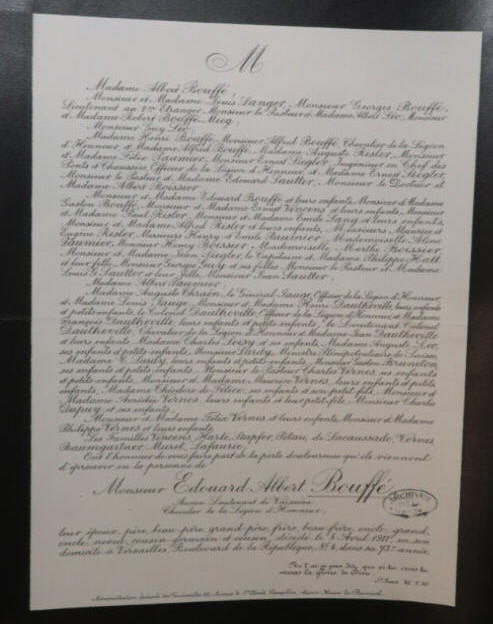 M
Madame Albert Bouffé,
Monsieur et Madame Louis Sanger, Monsieur Georges Bouffé,
Lieutenant au 2me Etranger, Monsieur le Pasteur et Madame Albert Léo, Monsieur
et Madame Robert Bouffé
Monsieur Guy Léo
Madame Henri Bouffé, Monsieur Alfred Bouffé, Chevalier de la Légion
d'Honneur et Madame Alfred Bouffé, Madame Auguste Risler, Monsieur
et Madame Félix Paumier, Monsieur Ernest Siegler, Ingénieur en Chef des
Ponts et Chaussées, Officier de la Légion d'Honneur, et Madame Ernest Siegler,
Monsieur le Pasteur et Madame Edouard Sautter, Monsieur le Docteur et
Madame Albert Boissier
Monsieur et Madame Edouard Bouffé et leurs enfants, Monsieur et Madame
Gaston Bouffé, Monsieur et Madame Ernest Vincens et leurs enfants, Monsieur
et Madame Paul Risler, Monsieur et Madame Emile Lang et leurs enfants,
Monsieur et Madame Alfred Risler et leurs enfants, Messieurs Maurice et
Eugène Risler, Messieurs Henry et Emile Paumier, Mademoiselle Aline
Paumier, Monsieur Henry Boissier, Mademoiselle Marthe Boissier
Monsieur et Madame Jean Siegler, le Capitaine et Madame Philippe Hatt
et leur fille, Monsieur Georges Guy et ses filles, Monsieur le Pasteur et Madame
Louis G. Sautter et leur fille, Monsieur Jean Sautter,
Madame Albert Paumier,
Madame Auguste Chrétin, le Général Jauge, Officier de la Légion d'Honneur,
et Madame Louis Jauge, Monsieur et Madame Henri Dautheville, leurs enfants
et petits enfants, le Colonel Dautheville, Officier de la Légion d'Honneur, et Madame
François Dautheville, leurs enfants et petits enfants, le Lieutenant Colonel
Dautheville, Chevalier de la Légion d'Honneur et Madame Jean Dautheville
et leurs enfants, Madame Charles et ses enfants, Madame Auguste Léo
ses enfants et petits enfants, Monsieur Lardy, Ministre Plénipotentiaire de Suisse,
Madame C. Lardy, leurs enfants et petits enfants, Monsieur Gaston Bruneton
ses enfants et petits enfants, Monsieur le Pasteur Charles Vernes, ses enfants
et petits enfants, Monsieur et Madame Maurice Vernes, leurs enfants et petits
enfants, Madame Théodore de ses enfants et son petit fils, Monsieur et
Madame Amédée Vernes, leurs enfants et leur petit-fils, Monsieur Charles
Dupuy et ses enfants
Monsieur et Madame Félix Vernes et leurs enfants, Monsieur et Madame
Philippe Vernes et leurs enfants
Les Familles Vincens, Harlé, Stapfer, de Lacaussade, Vernes
Baumgartner, Muret, Lafaurie,
Ont l'honneur de vous faire part de la perte douloureuse qu'ils viennent
d'éprouver en la personne de
Monsieur Edouard-Albert Bouffé
Ancien Lieutenant de Vaisseau
Chevalier de la Légion d'Honneur,
leur époux, père, beau-père, grand-père, frère, beau-frère, oncle, grand-
oncle, neveu, cousin-germain et cousin, décédé le 5 Avril 1911, en son
domicile à Versailles, Boulevard de la République, No 4, dans sa 73e année.
Ne t'ai-je pas dit, que si tu crois tu
verras la gloire de Dieu.
St Jean XI V. 40
ARCHIVES